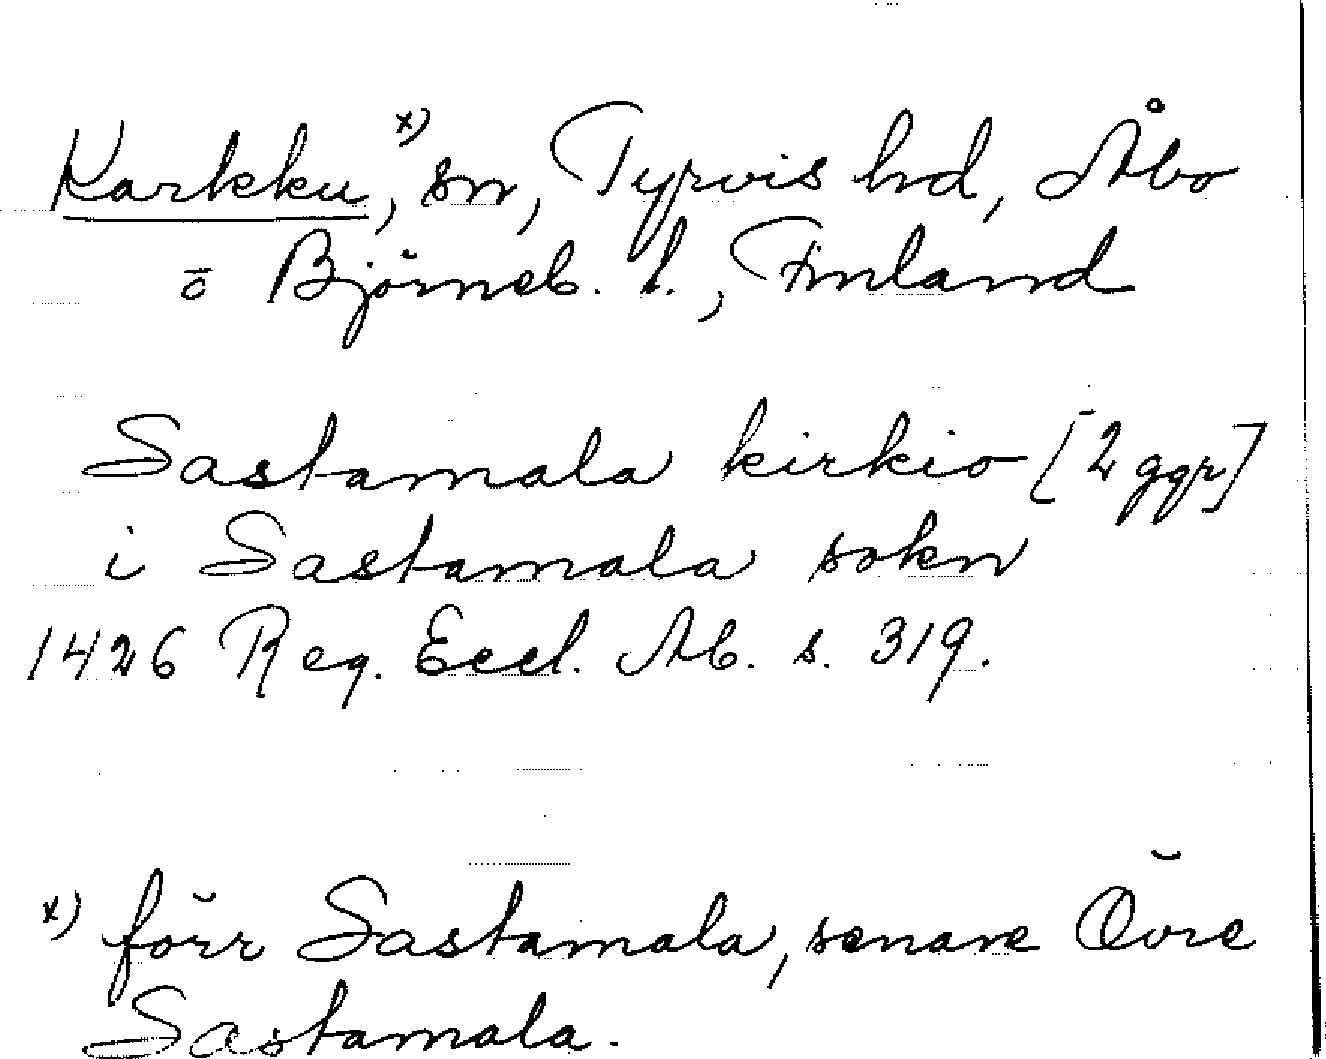 Karkku,ˣ⁾ sn, Tyrvis hd, Åbo
o Björneb. l., Finland
Sastamala kirkio [2 ggr]
i Sastamala sokn
1426 Reg. Eccl. Ab. s. 319.
x) förr Sastamala, senare Övre
Sastamala.